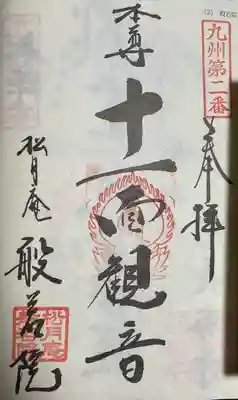 (2) 般若院
九州第二番
奉拝
本尊
十一面観音
松月庵
般若院